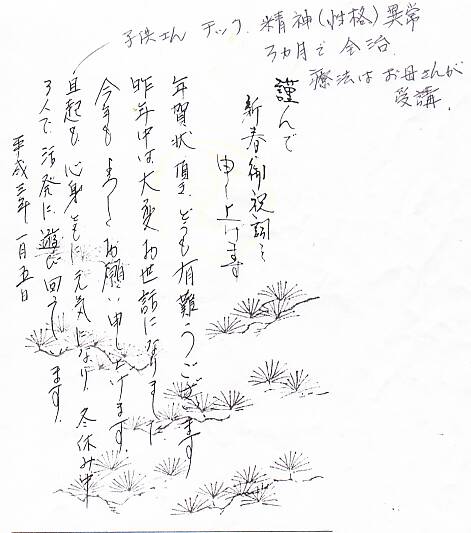 子供さん チック、精神(性格)異常
3カ月で 全治.
療法は お母さんが
受講.
謹んで
新春御祝詞を
申し上げます
年賀状頂き、どうも有難うございます
昨年中は大変お世話になりました
今年もよろしくお願い申し上げます.
直起も心身ともに元気になり 冬休み中
3人で活発に遊び回ってます.
平成三年一月五日